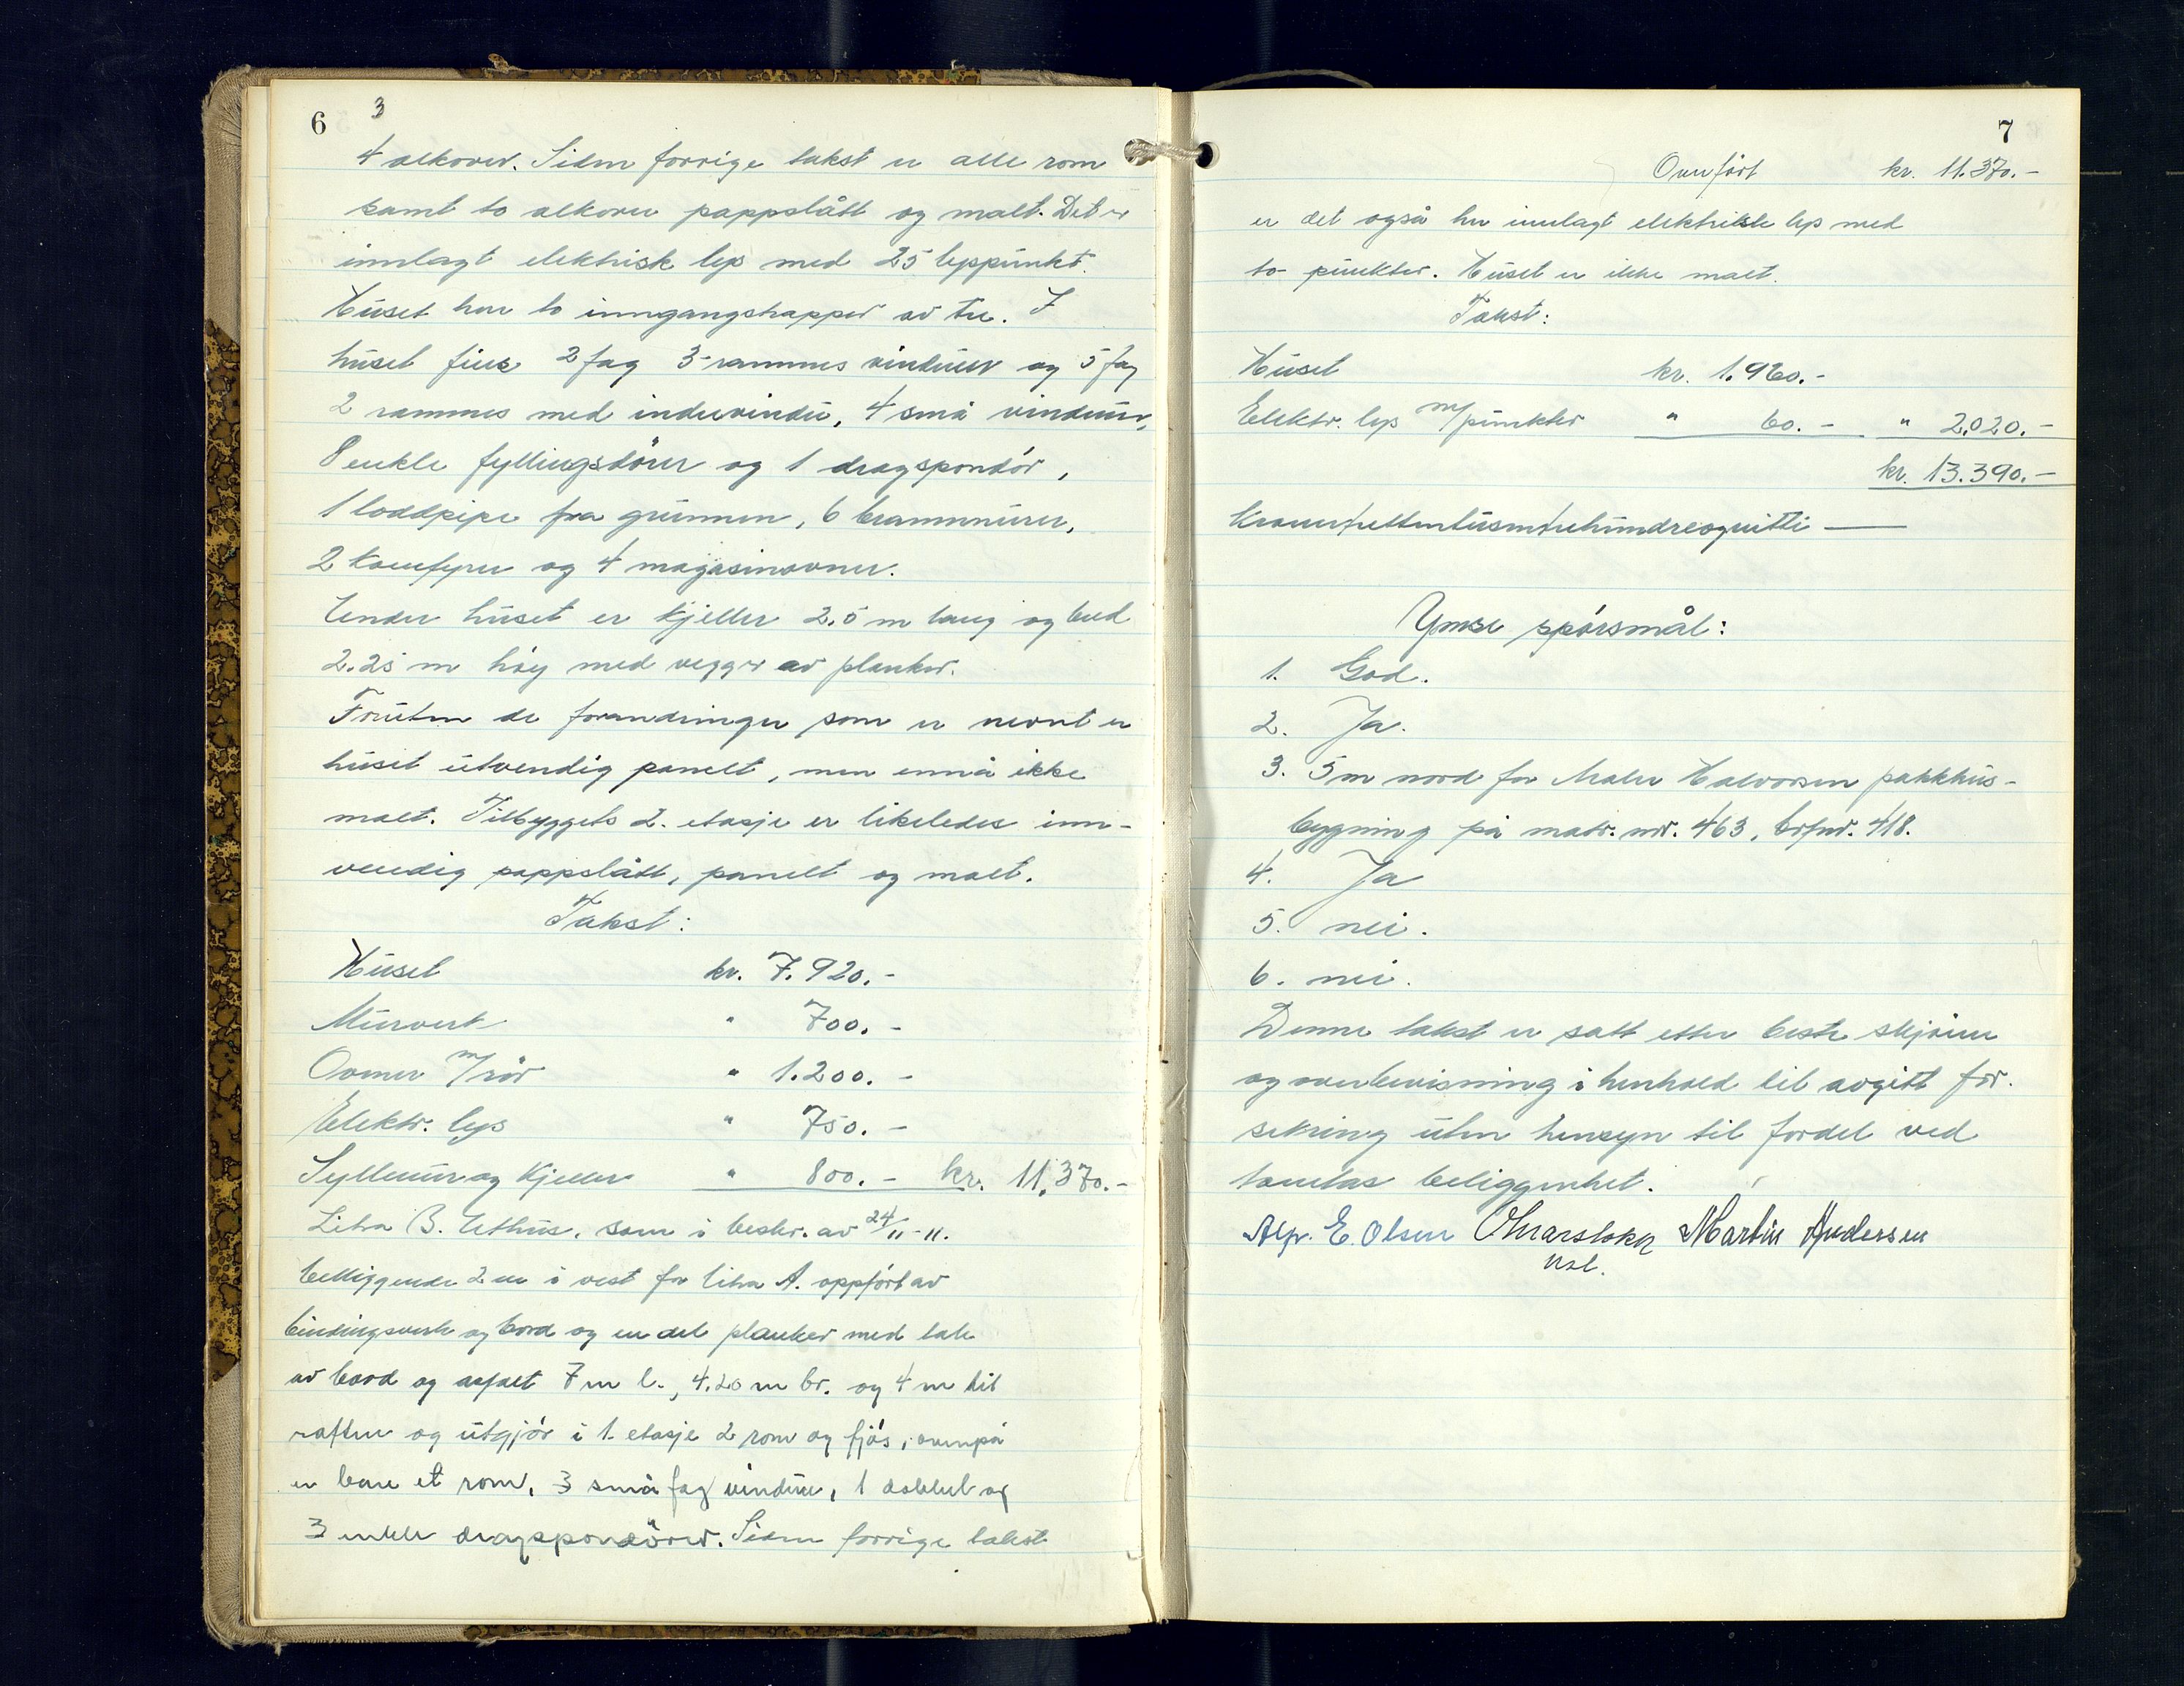 6
3
4 alkover. Siden forrige takst er alle rom
samt to alkover pappslått og malt. Det er
innlagt elektrisk lys med 25 lyspunkt.
Huset har to inngangstrapper av tre. I
huset fins 2 fag 3-rammes vinduer og 5 fag
2 rammes med indervindu, 4 små vinduer,
8 enkle fyllingsdører og 1 dragspondör,
1 loddpipe fra grunnen, 6 brannmurer,
2 komfyrer og 4 magasinovner.
Under huset er kjeller 2,5 m lang og bred
2.25 m høy med vegger av planker.
Foruten de forandringer som er nevnt er
huset utvendig panelt, men ennå ikke
malt. Tilbyggets 2. etasje er likeledes inn-
vendig pappslått, panelt og malt.
Takst:
Huset kr. 7.920.-
Murverk " 700.-
Ovner m/rör " 1.200.-
Elektr. lys " 750.-
Syllmur og kjeller " 800.- kr. 11,370.-
Litra B. Uthus, som i beskr. av 24/11-11.
beliggende 2 m i vest for litra A. oppført av
bindingsverk og bord og en del planker med tak
av bord og asfalt 7 m l., 4.20 m br. og 4 m til
raften og utgjör i 1. etasje 2 rom og fjös, ovenpå
er bare et rom, 3 små fag vinduer, 1 dobbel og
3 enkle dragspondörer. Siden forrige takst
7
Overfört kr. 11.370.-
er det også her innlagt elektriske lys med
to punkter. Huset er ikke malt.
Takst:
Huset kr. 1.960.-
Elektr. lys m/punkter " 60.- " 2,020.-
kr. 13.390.-
Kroner trettentusentrehundreognitti —
Ymse spörsmål:
1. God.
2. Ja.
3. 5 m nord for Maler Halvorsen pakkhus-
bygning på matr. nr. 463, brfnr. 418.
4. Ja
5. nei.
6. nei.
Denne takst er satt etter beste skjönn
og overbevisning i henhold til avgitt for-
sikring uten hensyn til fordel ved
tomtas beliggenhet.
Alfr. E. Olsen Martin Andersen